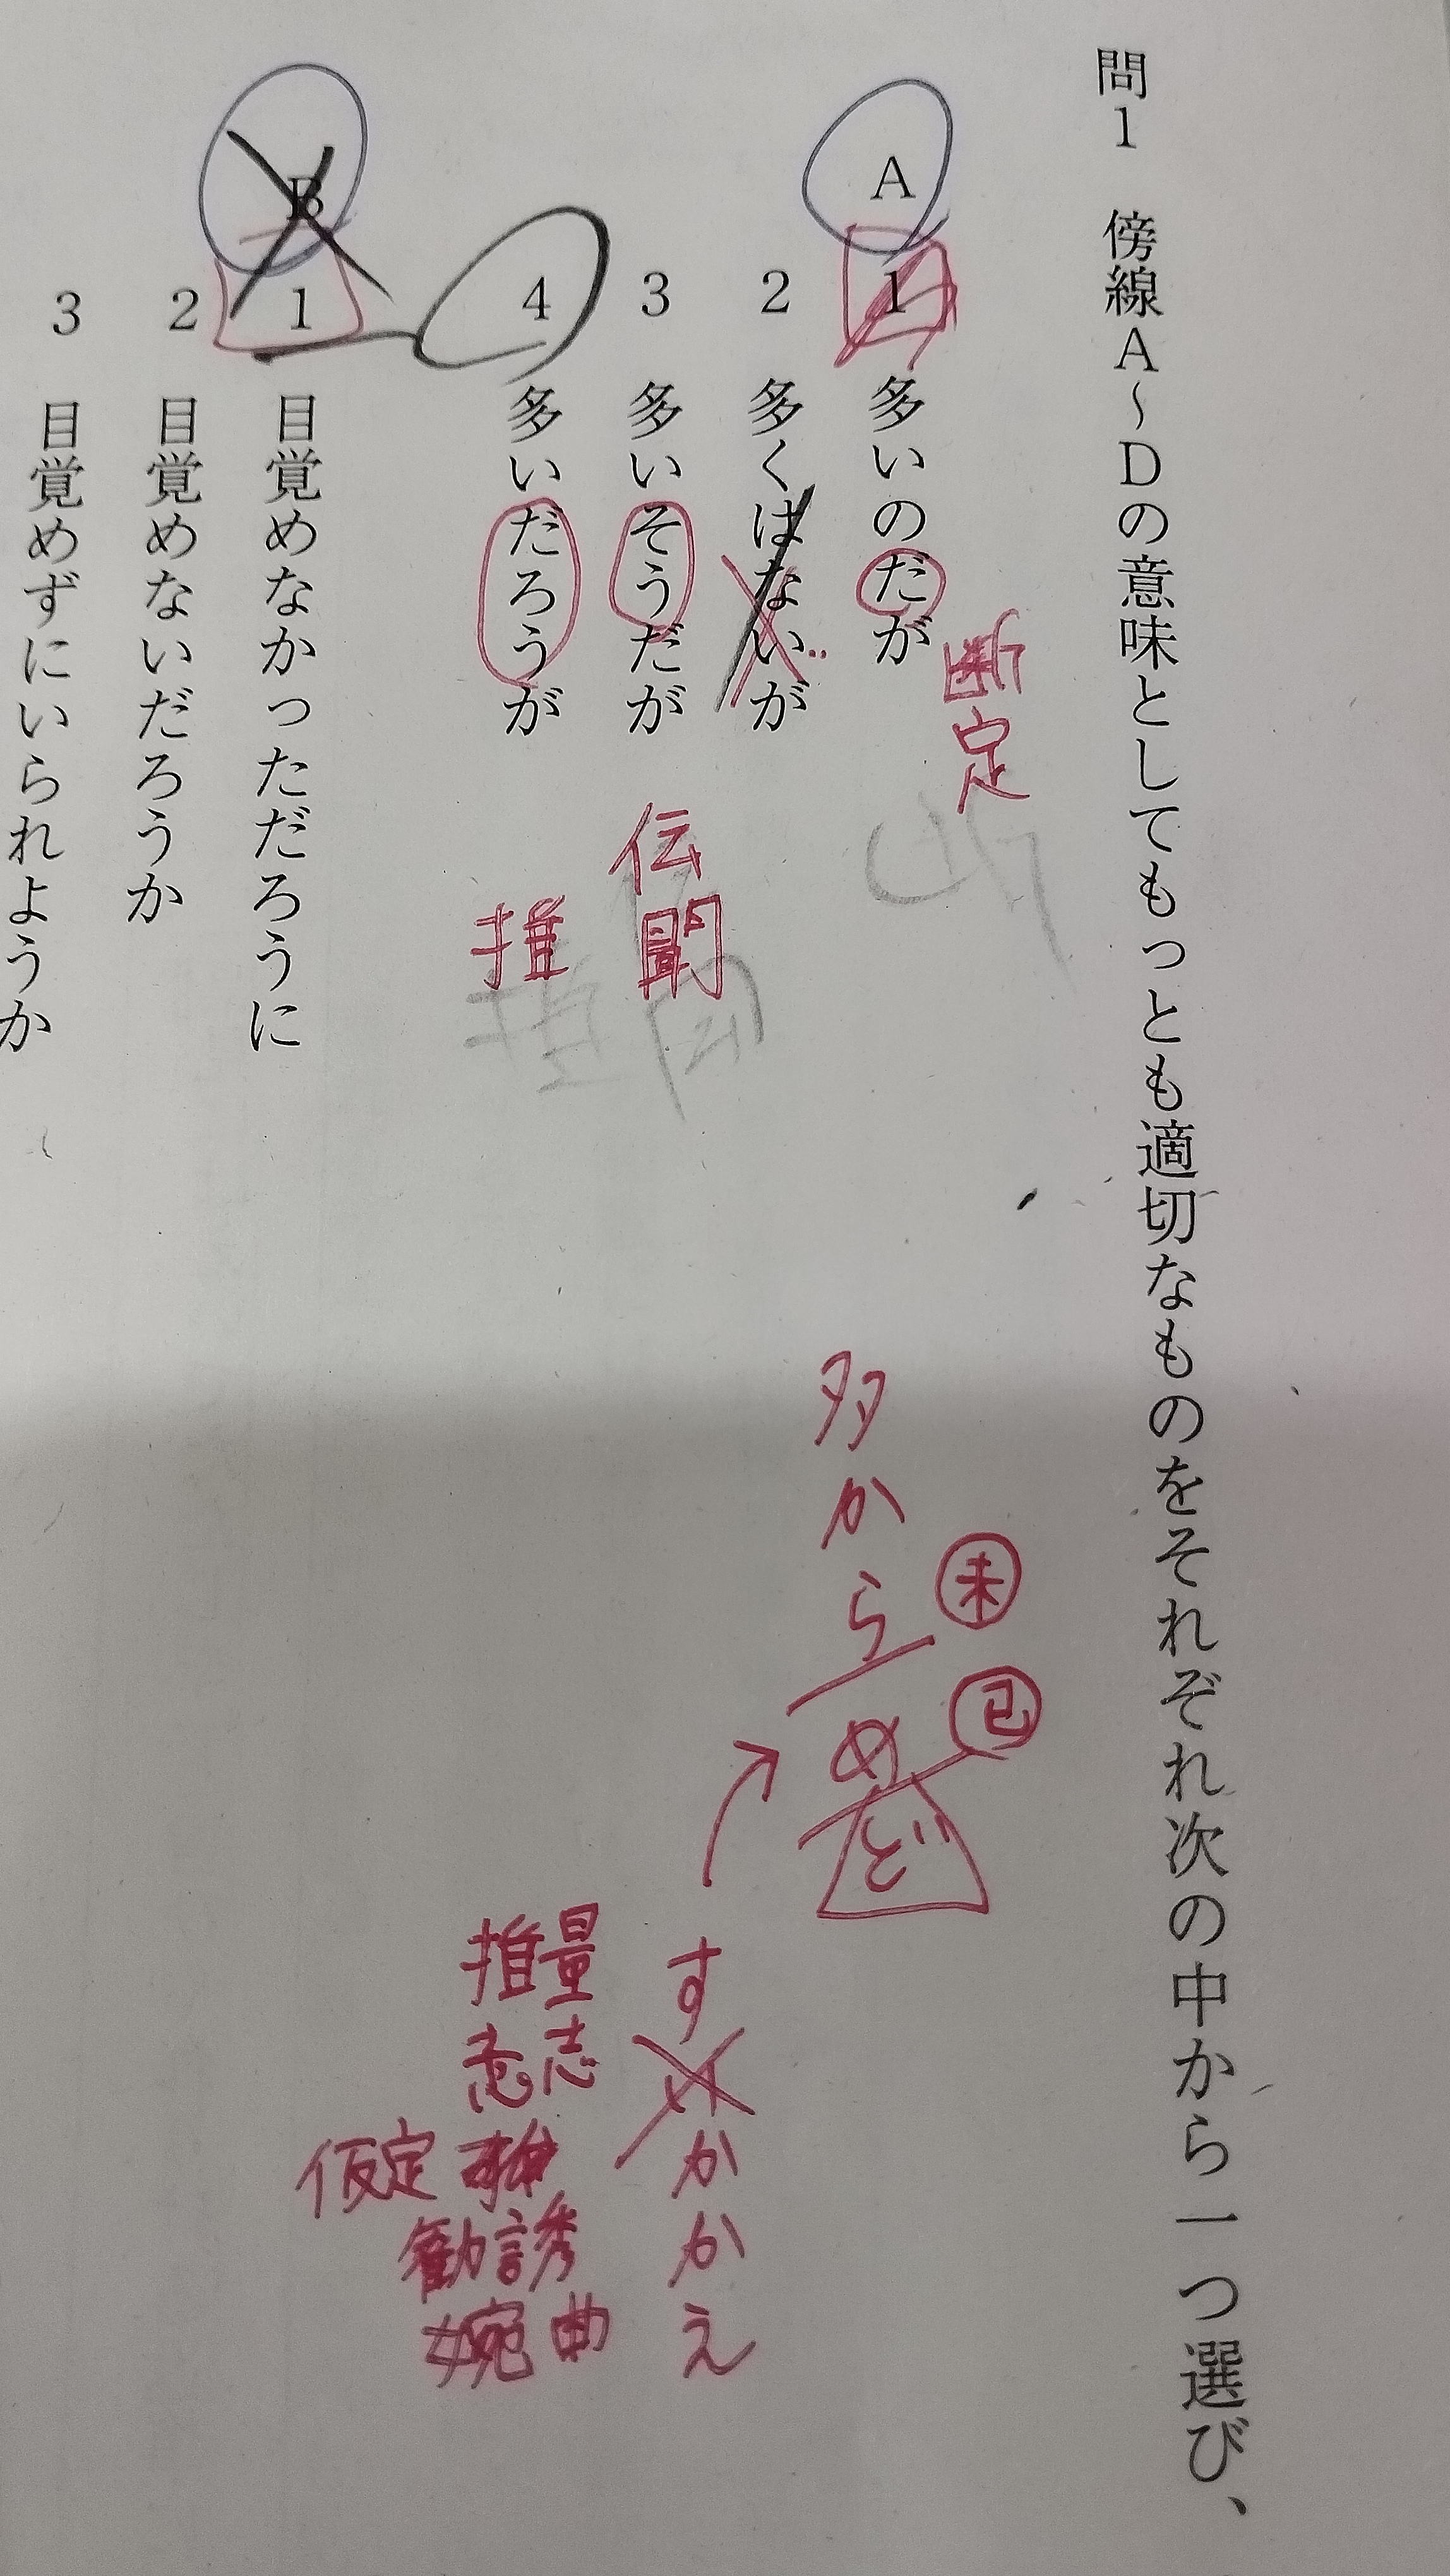 問1 傍線A～Dの意味としてもっとも適切なものをそれぞれ次の中から一つ選び、
A
1 多いのだが
断定
2 多くはないが
3 多いそうだが
伝聞
4 多いだろうが
推
B
1 目覚めなかっただろうに
2 目覚めないだろうか
3 目覚めずにいられようか
未
已
多からめど
す
かかえ
推量
志
仮定
勧誘
婉曲